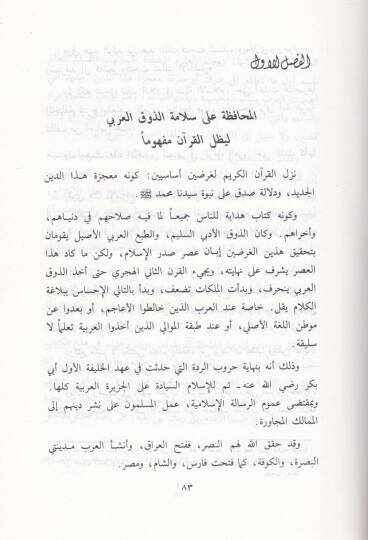 الفصل الأول
المحافظة على سلامة الذوق العربي
ليظل القرآن مفهوماً
نزل القرآن الكريم لغرضين أساسيين: كونه معجزة هذا الدين
الجديد، ودلالة صدق على نبوة سيدنا محمد ﷺ.
وكونه كتاب هداية للناس جميعاً لما فيه صلاحهم في دنياهم،
وأخراهم. وكان الذوق الأدبي السليم، والطبع العربي الأصيل يقومان
بتحقيق هذين الغرضين إبان عصر صدر الإسلام، ولكن ما كاد هذا
العصر يشرف على نهايته، ويجيء القرن الثاني الهجري حتى أخذ الذوق
العربي ينحرف، وبدأت الملكات تضعف، وبدأ بالتالي الإحساس ببلاغة
الكلام يقل. خاصة عند العرب الذين خالطوا الأعاجم، أو بعدوا عن
موطن اللغة الأصلي، أو عند طبقة الموالي الذين أخذوا العربية تعلماً لا
سليقة.
وذلك أنه بنهاية حروب الردة التي حدثت في عهد الخليفة الأول أبي
بكر رضي الله عنه ـ تم للإسلام السيادة على الجزيرة العربية كلها.
وبمقتضى عموم الرسالة الإسلامية، عمل المسلمون على نشر دينهم إلى
الممالك المجاورة.
وقد حقق الله لهم النصر، ففتح العراق، وأنشأ العرب مدينتي
البصرة، والكوفة، كما فتحت فارس، والشام، ومصر.
٨٣